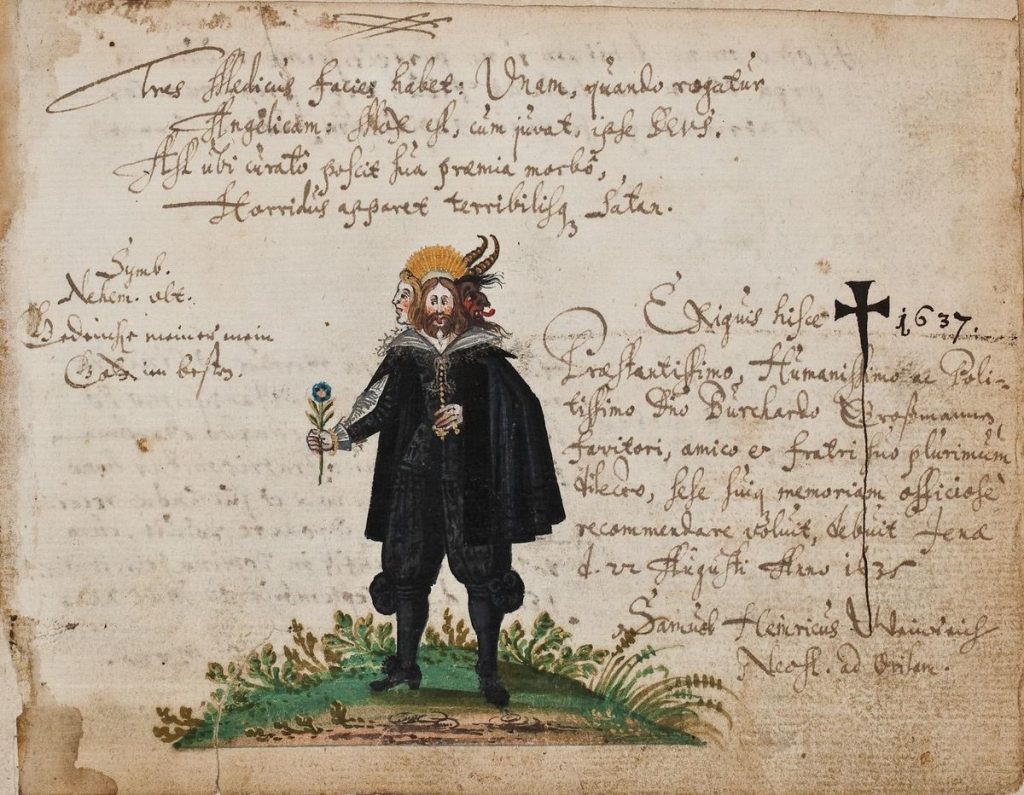 Tres Medicus facies habet: Unam, quando rogatur
Angelicam: Mox est, cum juvat, ipse DEUS.
Ast ubi curatô poscit sua præmia morbô,
Horridus apparet terribilisq Satan.
Symb.
Nehem. ult.
Gedencke meiner mein
Gott im besten.
Exiguis hisce
1637.
Præstantissimo, Humanissimo ac Poli-
tissimo Dno Burchardo Großmannno
favitori, amico et fratri suo plurimum
dilecto, sese suiq memoriam officiose
recommendare voluit, debuit Jenæ
d. 22 Augusti Anno 1635
Samuel Heinricus Weinreich
Neost. ad Orilam.